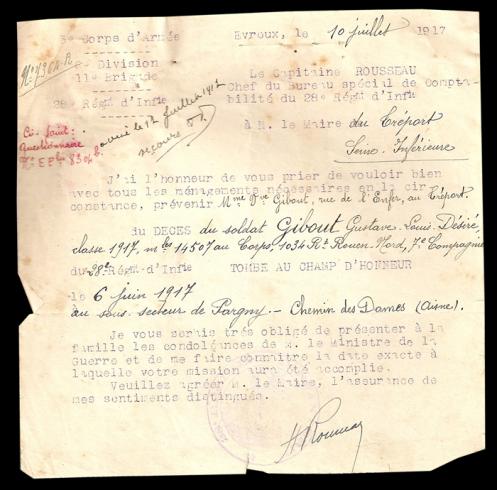 3e Corps d'Armée
Evreux, le 10 juillet 1917
Division
11e Brigade
28e Régmt d'Infie
Le Capitaine ROUSSEAU
Chef du Bureau spécial de Compta-
bilité du 28e Régmt d'Infie
à M. le Maire du Tréport
Seine-Inférieure
J'ai l'honneur de vous prier de vouloir bien
avec tous les ménagements nécessaires en la cir
constance, prévenir Mme Vve Gibout, rue de l'Enfer, au Tréport.
du DECES du soldat Gibout Gustave-Louis-Désiré,
classe 1917, mle 14507 au Corps, 1034 Rt Rouen-Nord, 7e Compagnie
du 28e Régmt d'Infie TOMBE AU CHAMP D'HONNEUR
le 6 juin 1917
au sous secteur de Pargny.- Chemin des Dames (Aisne).
Je vous serais très obligé de présenter à la
famille les condoléances de M. le Ministre de la
Guerre et de me faire connaître la date exacte à
laquelle votre mission aura été accomplie.
Veuillez agréer M. le Maire, l'assurance de
mes sentiments distingués.